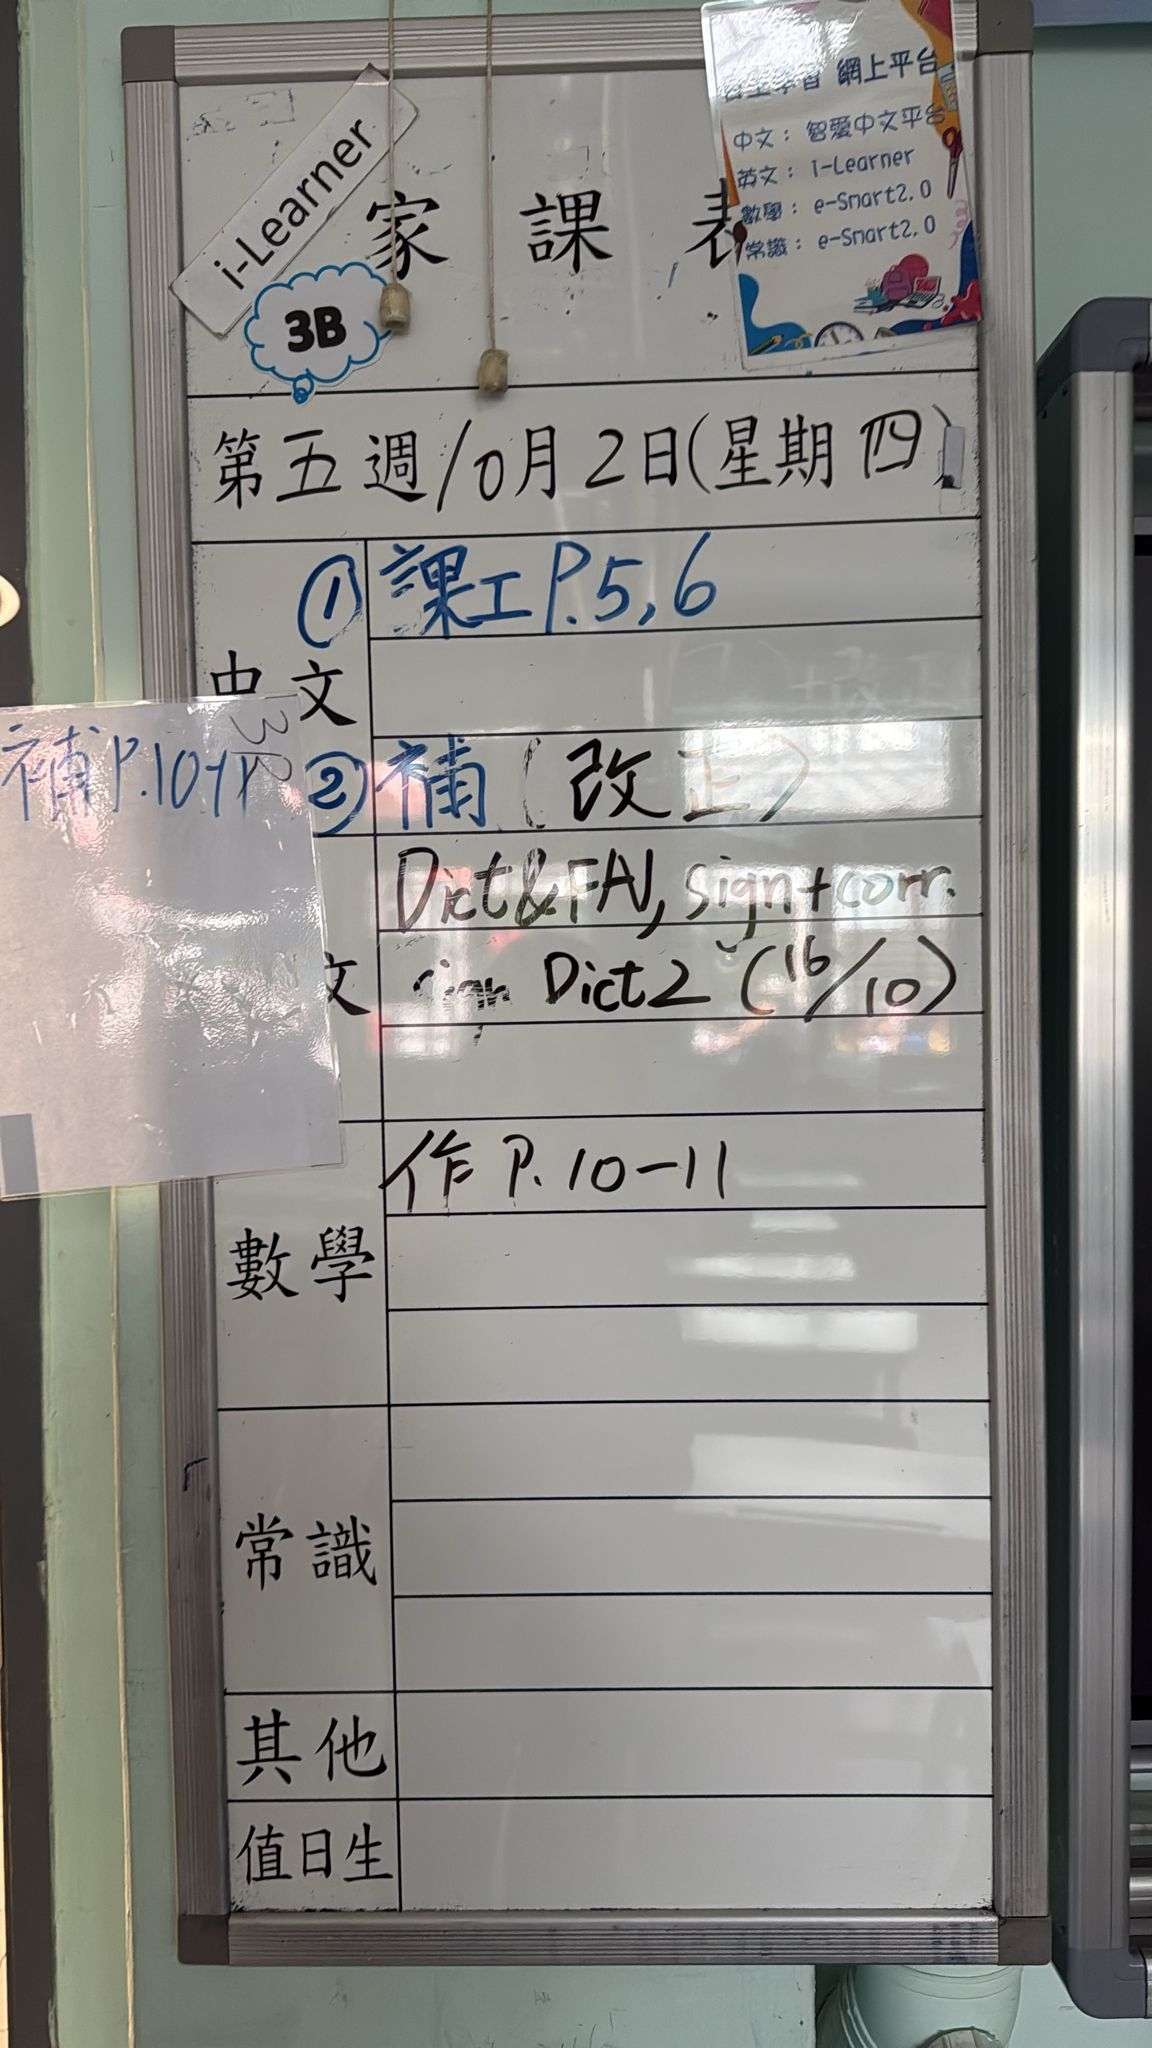 i-Learner
3B
家課表
學習 網上平台
中文： 智愛中文平台
英文： i-Learner
數學： e-Smart2.0
常識： e-Smart2.0
第五週10月2日(星期四)
中文
① 課工 P.5,6
② 補(改正)
補P.10-11
3B
文
Dict&FA1, sign+corr.
sign Dict2 (16/10)
數學
作 P.10-11
常識
其他
值日生